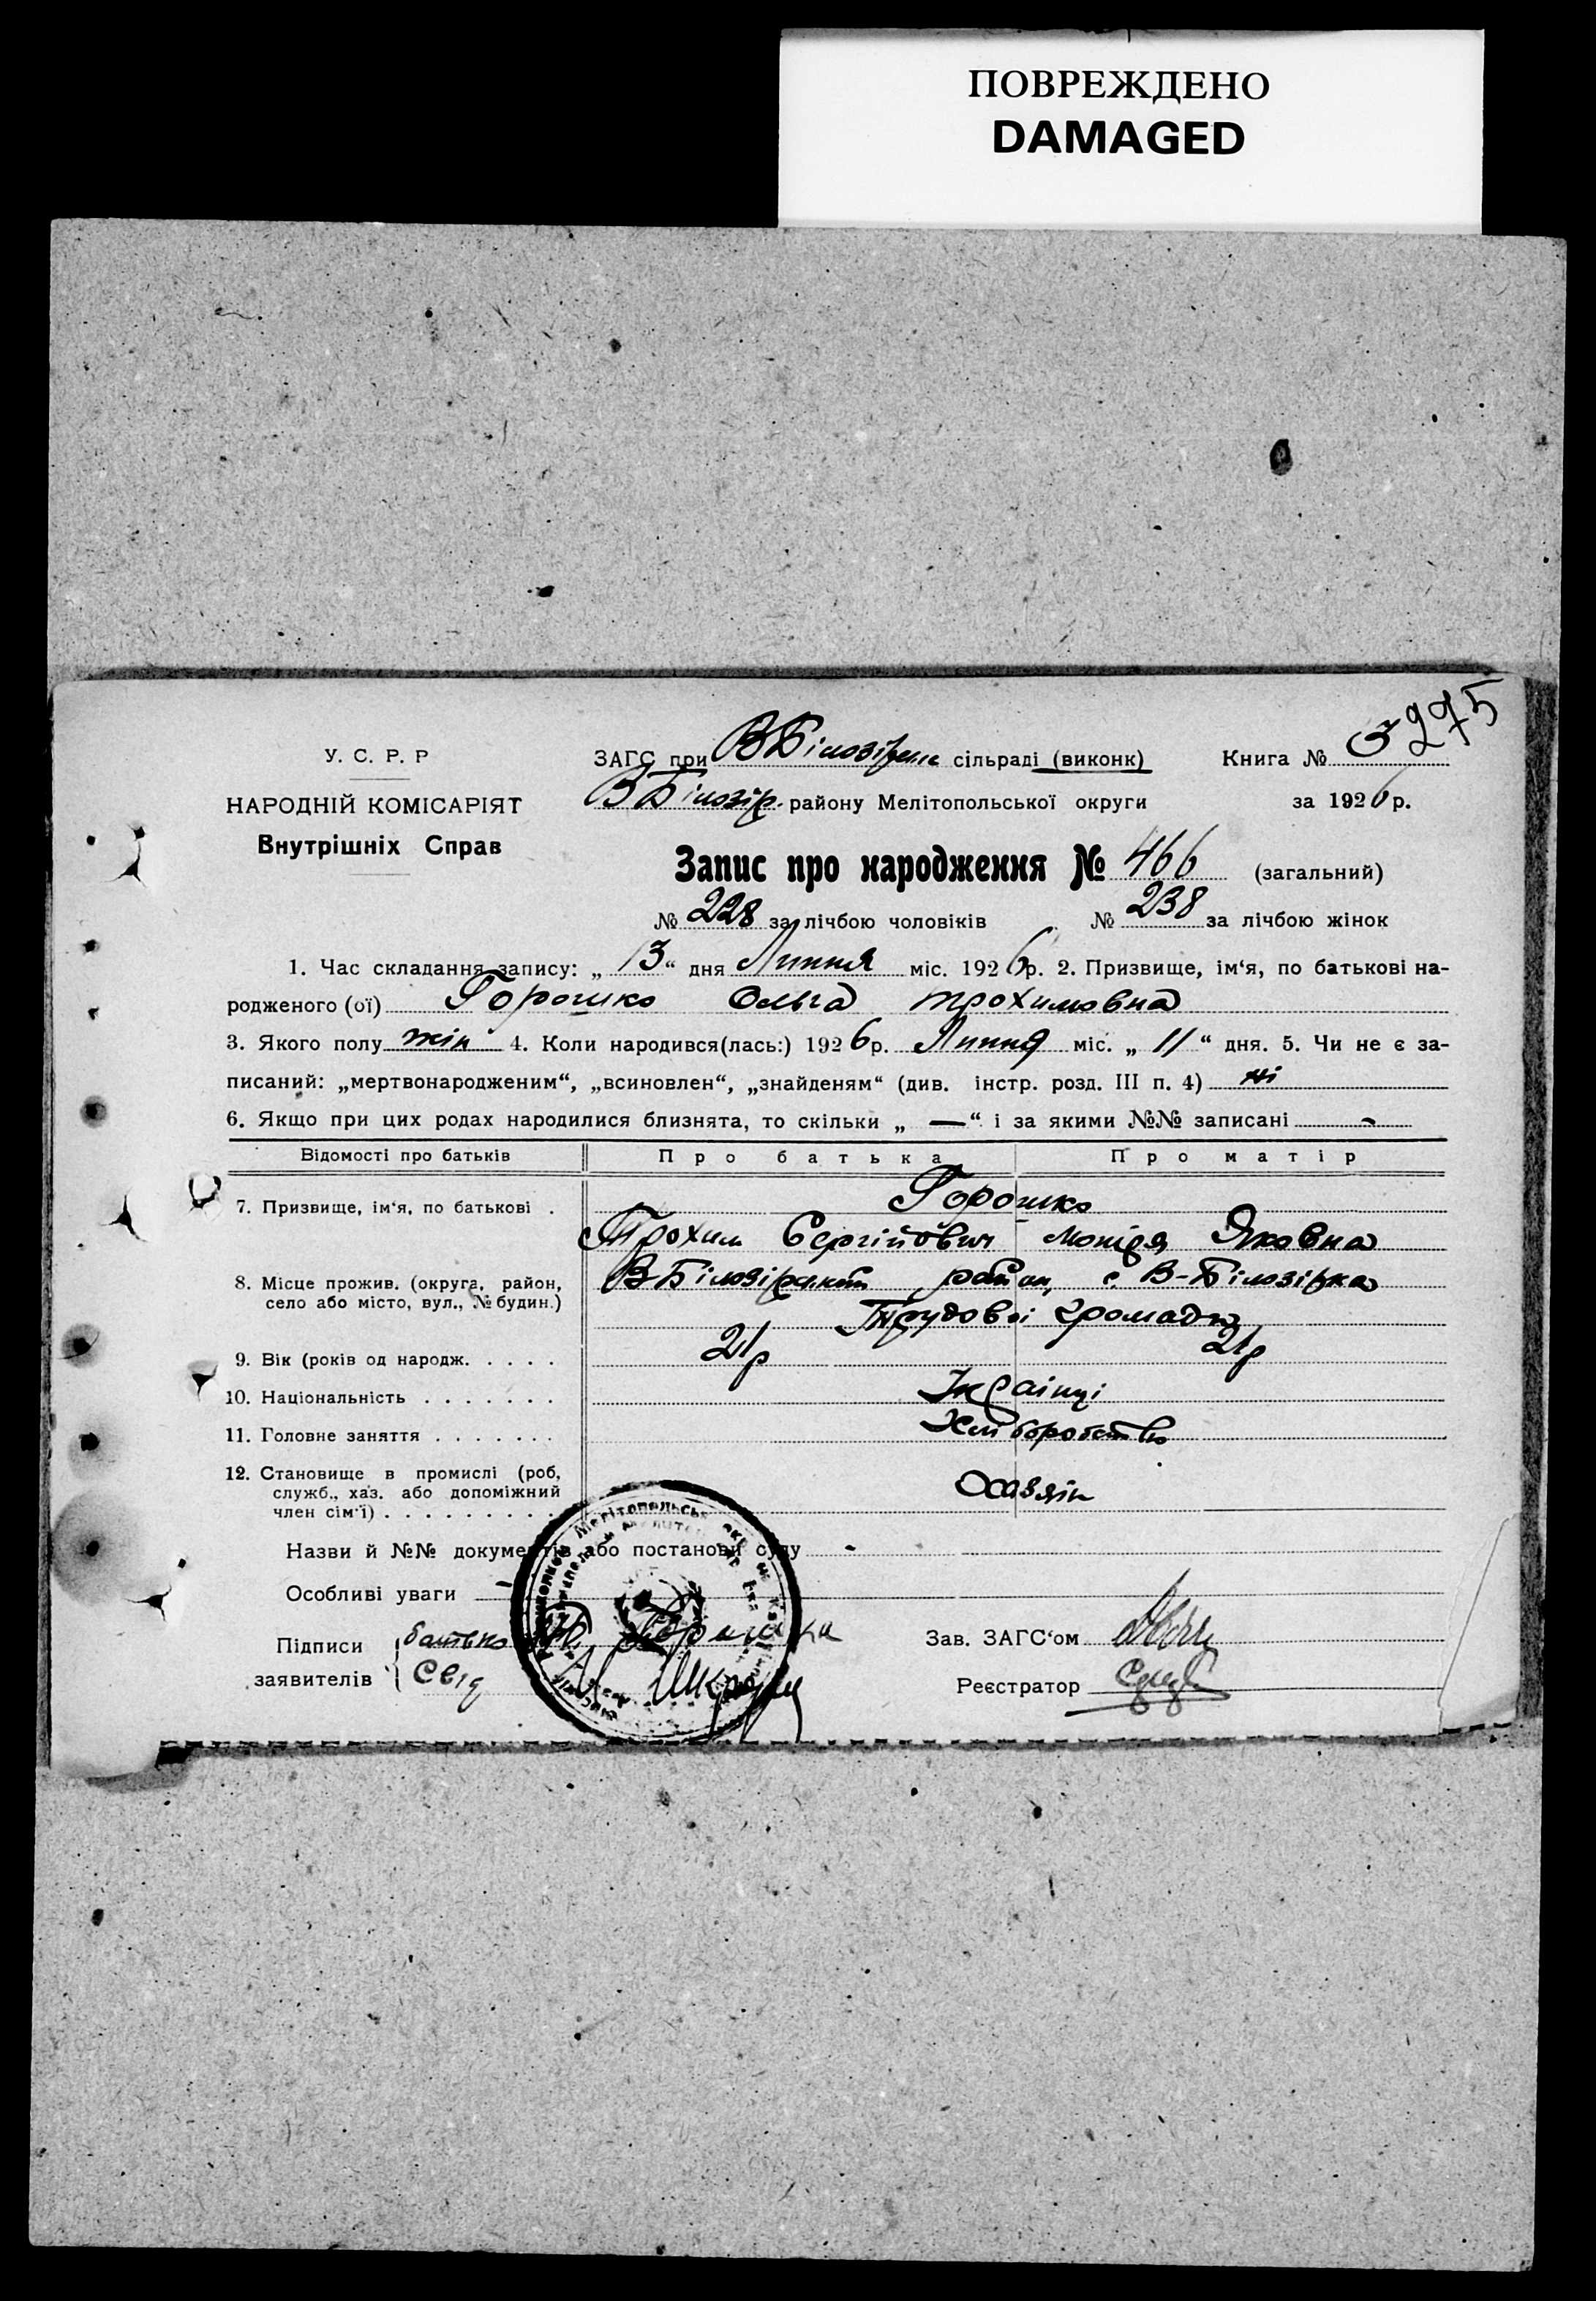 ПОВРЕЖДЕНО
DAMAGED
275
У. С. Р. Р
НАРОДНІЙ КОМІСАРІЯТ
Внутрішніх Справ
ЗАГС при В Білозірськ сільраді (виконк) Книга № 3
В Білозір. району Мелітопольської округи за 1926 р.
Запис про народження № 466 (загальний)
№ 228 за лічбою чоловіків № 238 за лічбою жінок
1. Час складання запису: „ 13 “ дня Липня міс. 1926 р. 2. Призвище, ім‘я, по батькові на-
родженого (ої) Горошко Ольга Трохимовна
3. Якого полу жін 4. Коли народився(лась:) 1926 р. Липня міс. „ 11 “ дня. 5. Чи не є за-
писаний: „мертвонародженим“, „всиновлен“, „знайденям“ (див. інстр. розд. III п. 4) ні
6. Якщо при цих родах народилися близнята, то скільки „ — “ і за якими №№ записані -
Відомості про батьків Про батька Про матір
7. Призвище, ім‘я, по батькові . Горошко
Трохим Сергійович Яковна
8. Місце прожив. (округа, район, село або місто, вул., № будин.) В-Білозірський район, с. В-Білозірка
Трудової громади
9. Вік (років од народж. . . . . 21 р 21 р
10. Національність . . . . . . . Українці
11. Головне заняття . . . . . . . Хліборобство
12. Становище в промислі (роб, служб., хаз. або допоміжний член сім‘ї) . . . . . . . . . Хазяїн
Назви й №№ документів або постанови суду -
Особливі уваги -
Підписи заявителів { батько Горошка
Свід
Зав. ЗАГС‘ом
Реєстратор